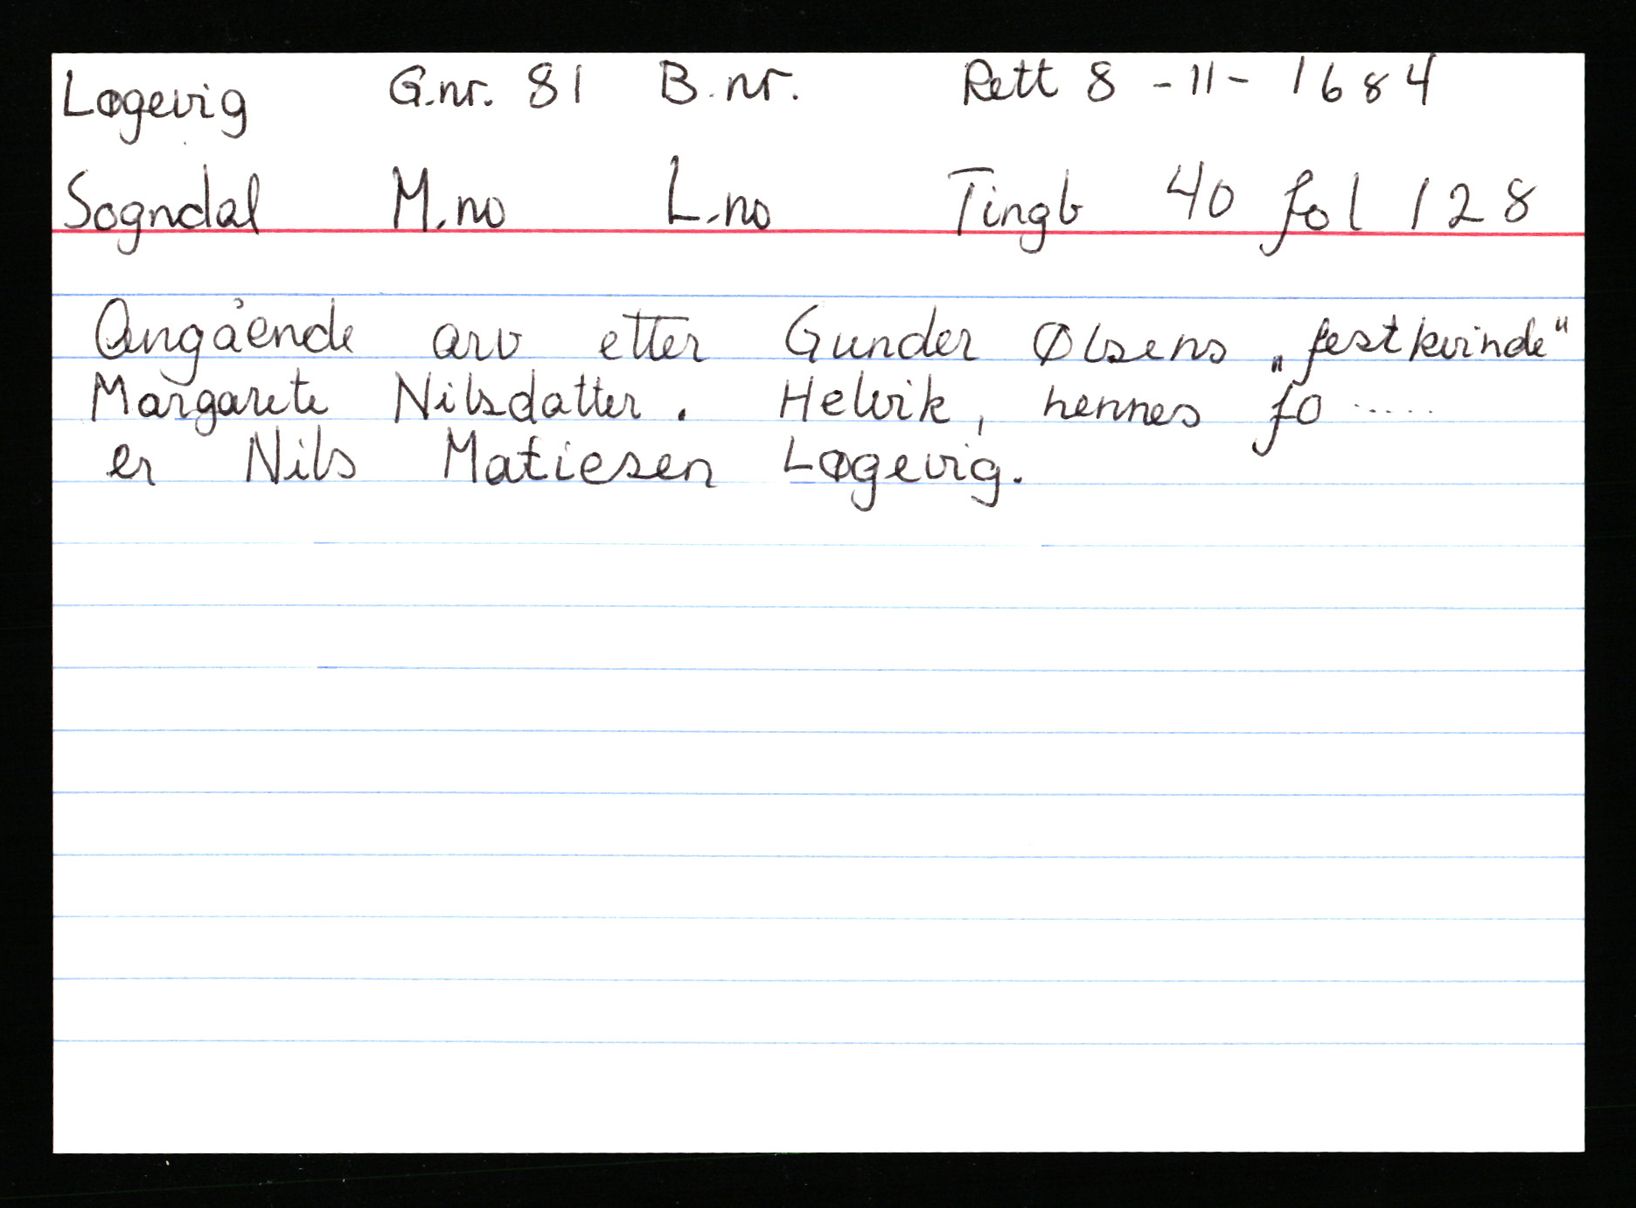 Løgevig G.nr. 81 B.nr. Rett 8-11-1684
Sogndal M.no L.no Tingb 40 fol 128
Angående arv etter Gunder Ølsens „festkvinde"
Margarete Nilsdatter. Helvik, hennes fo.....
er Nils Matiesen Løgevig.